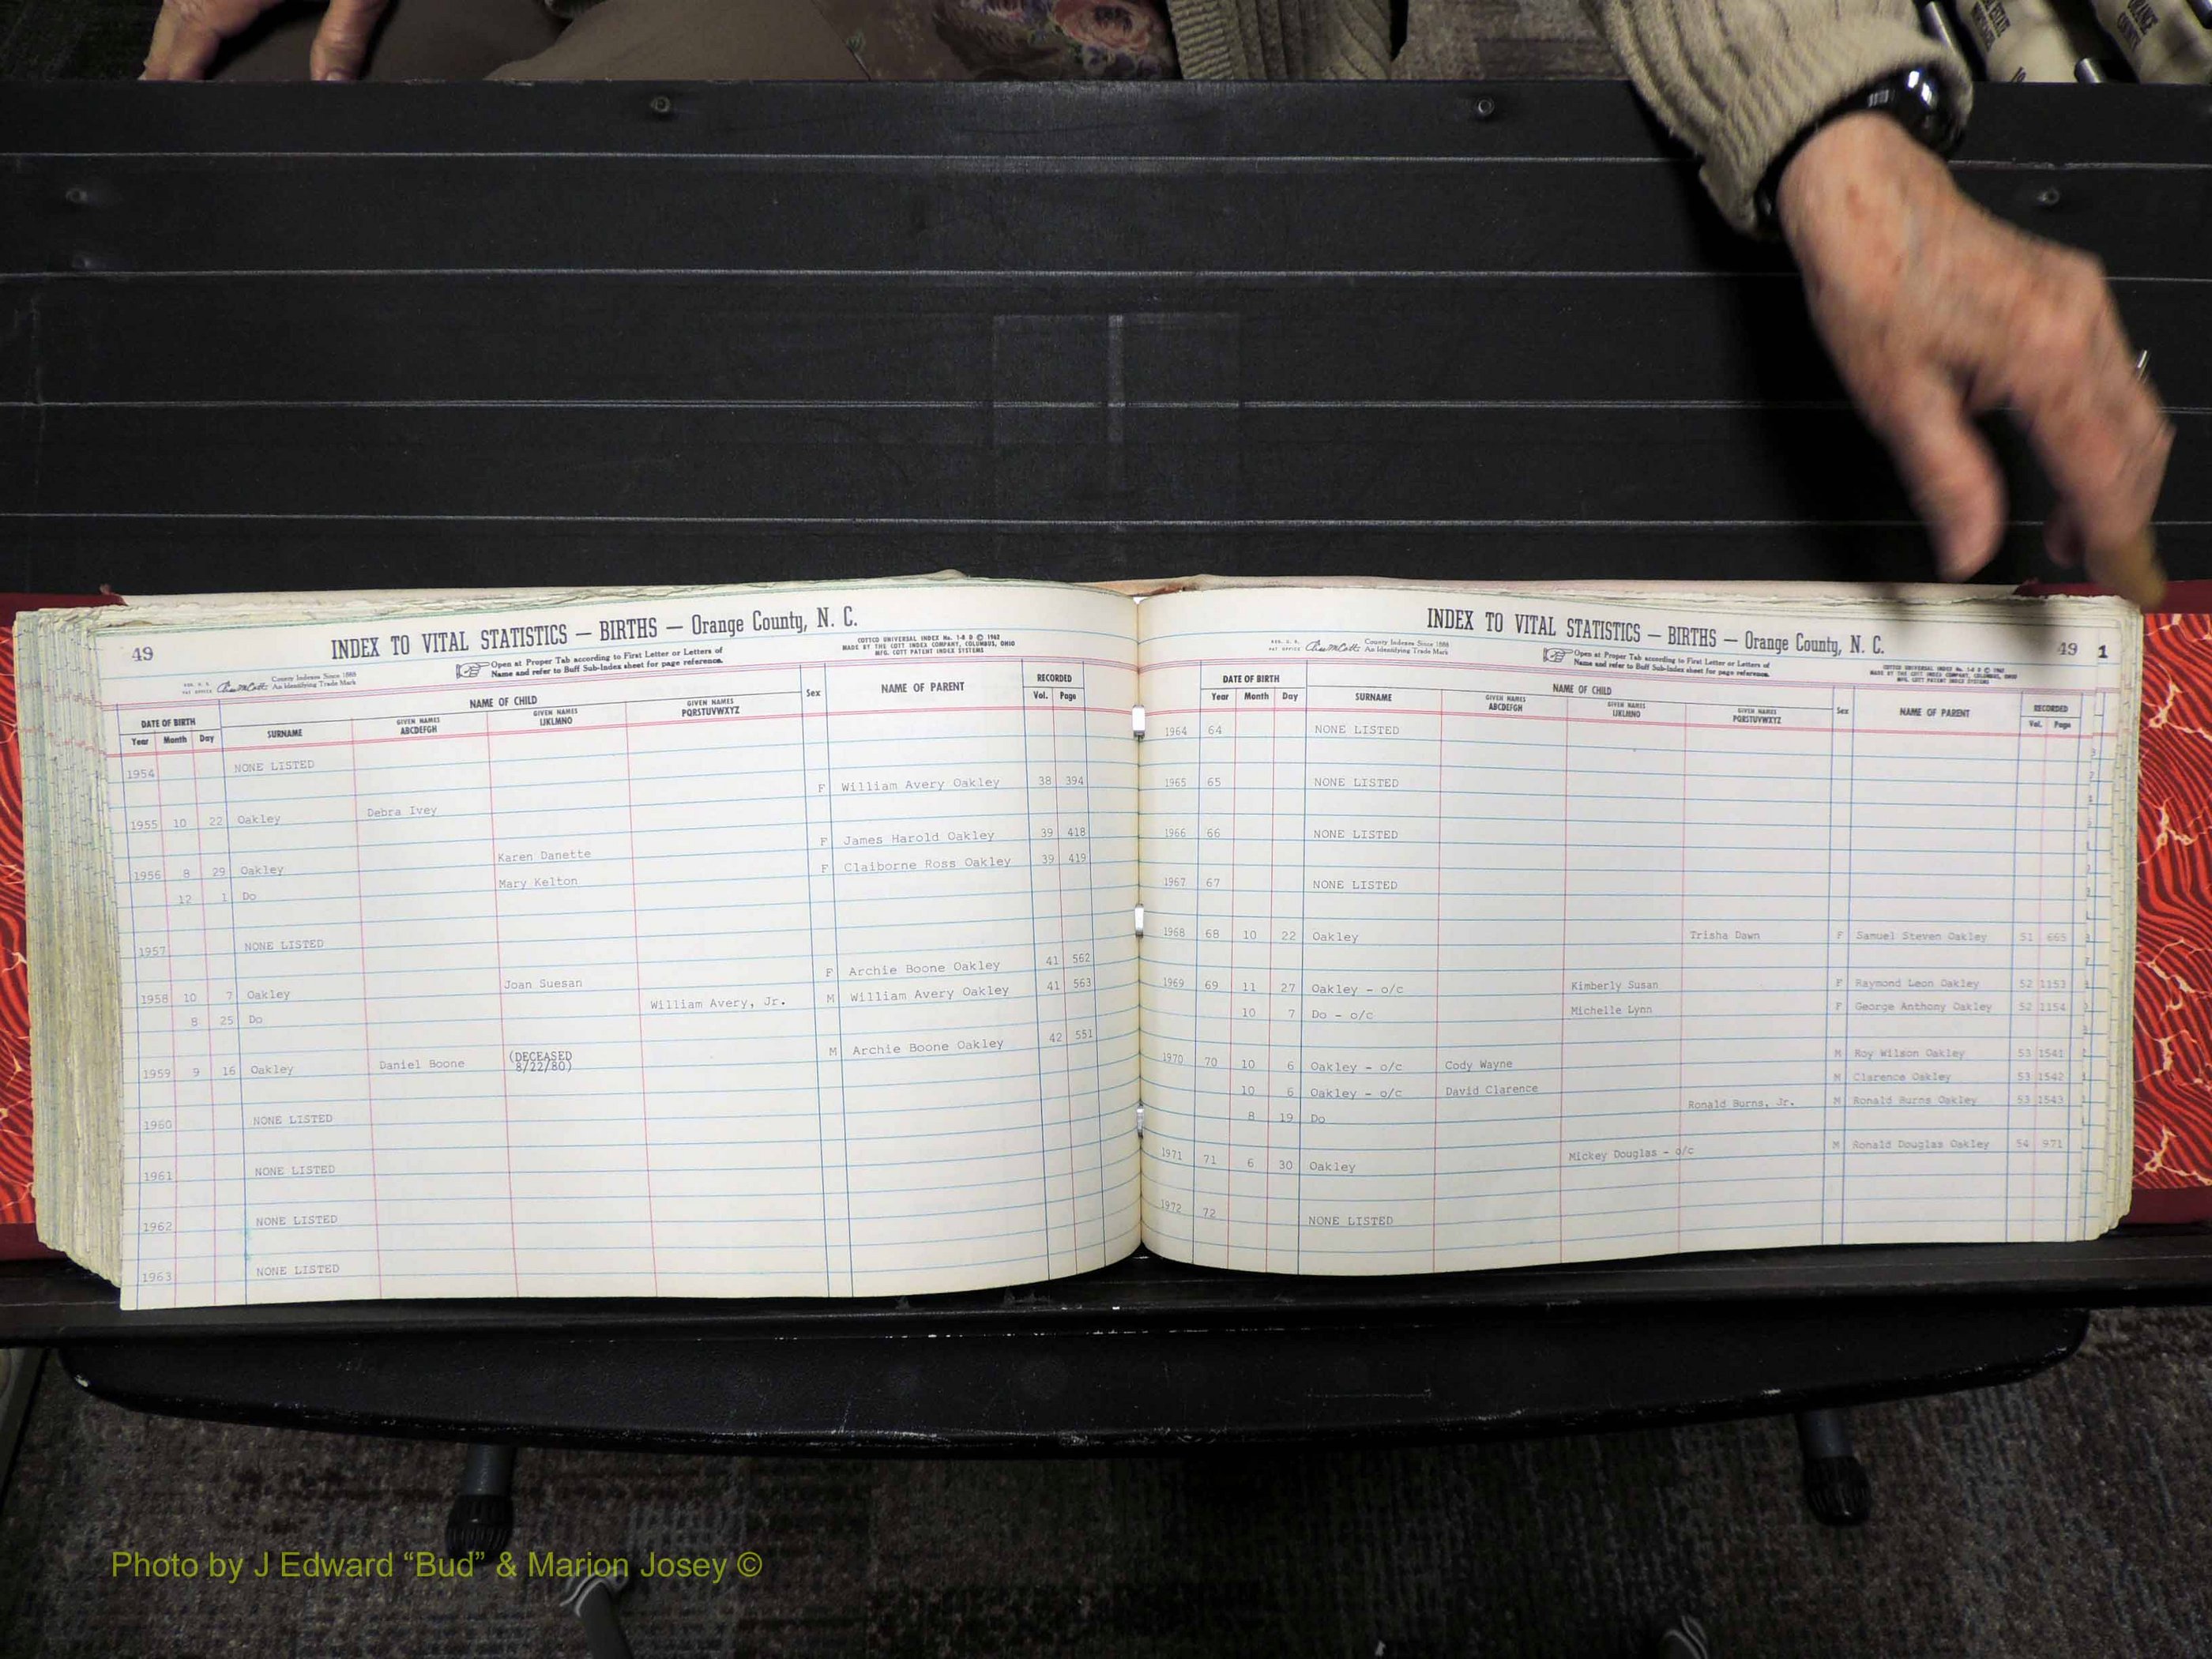 49
INDEX TO VITAL STATISTICS — BIRTHS — Orange County, N. C.
Open at Proper Tab according to First Letter or Letters of
Name and refer to Buff Sub-Index sheet for page reference.
COTTCO UNIVERSAL INDEX No. 1-8 D © 1962
MADE BY THE COTT INDEX COMPANY, COLUMBUS, OHIO
MFG. COTT PATENT INDEX SYSTEMS
County Indexes Since 1888
An Identifying Trade Mark
DATE OF BIRTH NAME OF CHILD Sex NAME OF PARENT RECORDED
Year Month Day SURNAME GIVEN NAMES ABCDEFGH GIVEN NAMES IJKLMNO GIVEN NAMES PQRSTUVWXYZ Vol. Page
1954 NONE LISTED
1955 10 22 Oakley Debra Ivey F William Avery Oakley 38 394
1956 8 29 Oakley Karen Danette F James Harold Oakley 39 418
12 1 Do Mary Kelton F Claiborne Ross Oakley 39 419
1957 NONE LISTED
1958 10 7 Oakley Joan Suesan F Archie Boone Oakley 41 562
8 25 Do William Avery, Jr. M William Avery Oakley 41 563
1959 9 16 Oakley Daniel Boone (DECEASED 8/22/80) M Archie Boone Oakley 42 551
1960 NONE LISTED
1961 NONE LISTED
1962 NONE LISTED
1963 NONE LISTED
INDEX TO VITAL STATISTICS — BIRTHS — Orange County, N. C.
49 1
County Indexes Since 1888
An Identifying Trade Mark
Open at Proper Tab according to First Letter or Letters of
Name and refer to Buff Sub-Index sheet for page reference.
COTTCO UNIVERSAL INDEX No. 1-8 D © 1962
MADE BY THE COTT INDEX COMPANY, COLUMBUS, OHIO
MFG. COTT PATENT INDEX SYSTEMS
DATE OF BIRTH NAME OF CHILD Sex NAME OF PARENT RECORDED
Year Month Day SURNAME GIVEN NAMES ABCDEFGH GIVEN NAMES IJKLMNO GIVEN NAMES PQRSTUVWXYZ Vol. Page
1964 64 NONE LISTED
1965 65 NONE LISTED
1966 66 NONE LISTED
1967 67 NONE LISTED
1968 68 10 22 Oakley Trisha Dawn F Samuel Steven Oakley 51 665
1969 69 11 27 Oakley - o/c Kimberly Susan F Raymond Leon Oakley 52 1153
10 7 Do - o/c Michelle Lynn F George Anthony Oakley 52 1154
1970 70 10 6 Oakley - o/c Cody Wayne M Roy Wilson Oakley 53 1541
10 6 Oakley - o/c David Clarence M Clarence Oakley 53 1542
8 19 Do Ronald Burns, Jr. M Ronald Burns Oakley 53 1543
1971 71 6 30 Oakley Mickey Douglas - o/c M Ronald Douglas Oakley 54 971
1972 72 NONE LISTED
Photo by J Edward “Bud” & Marion Josey ©